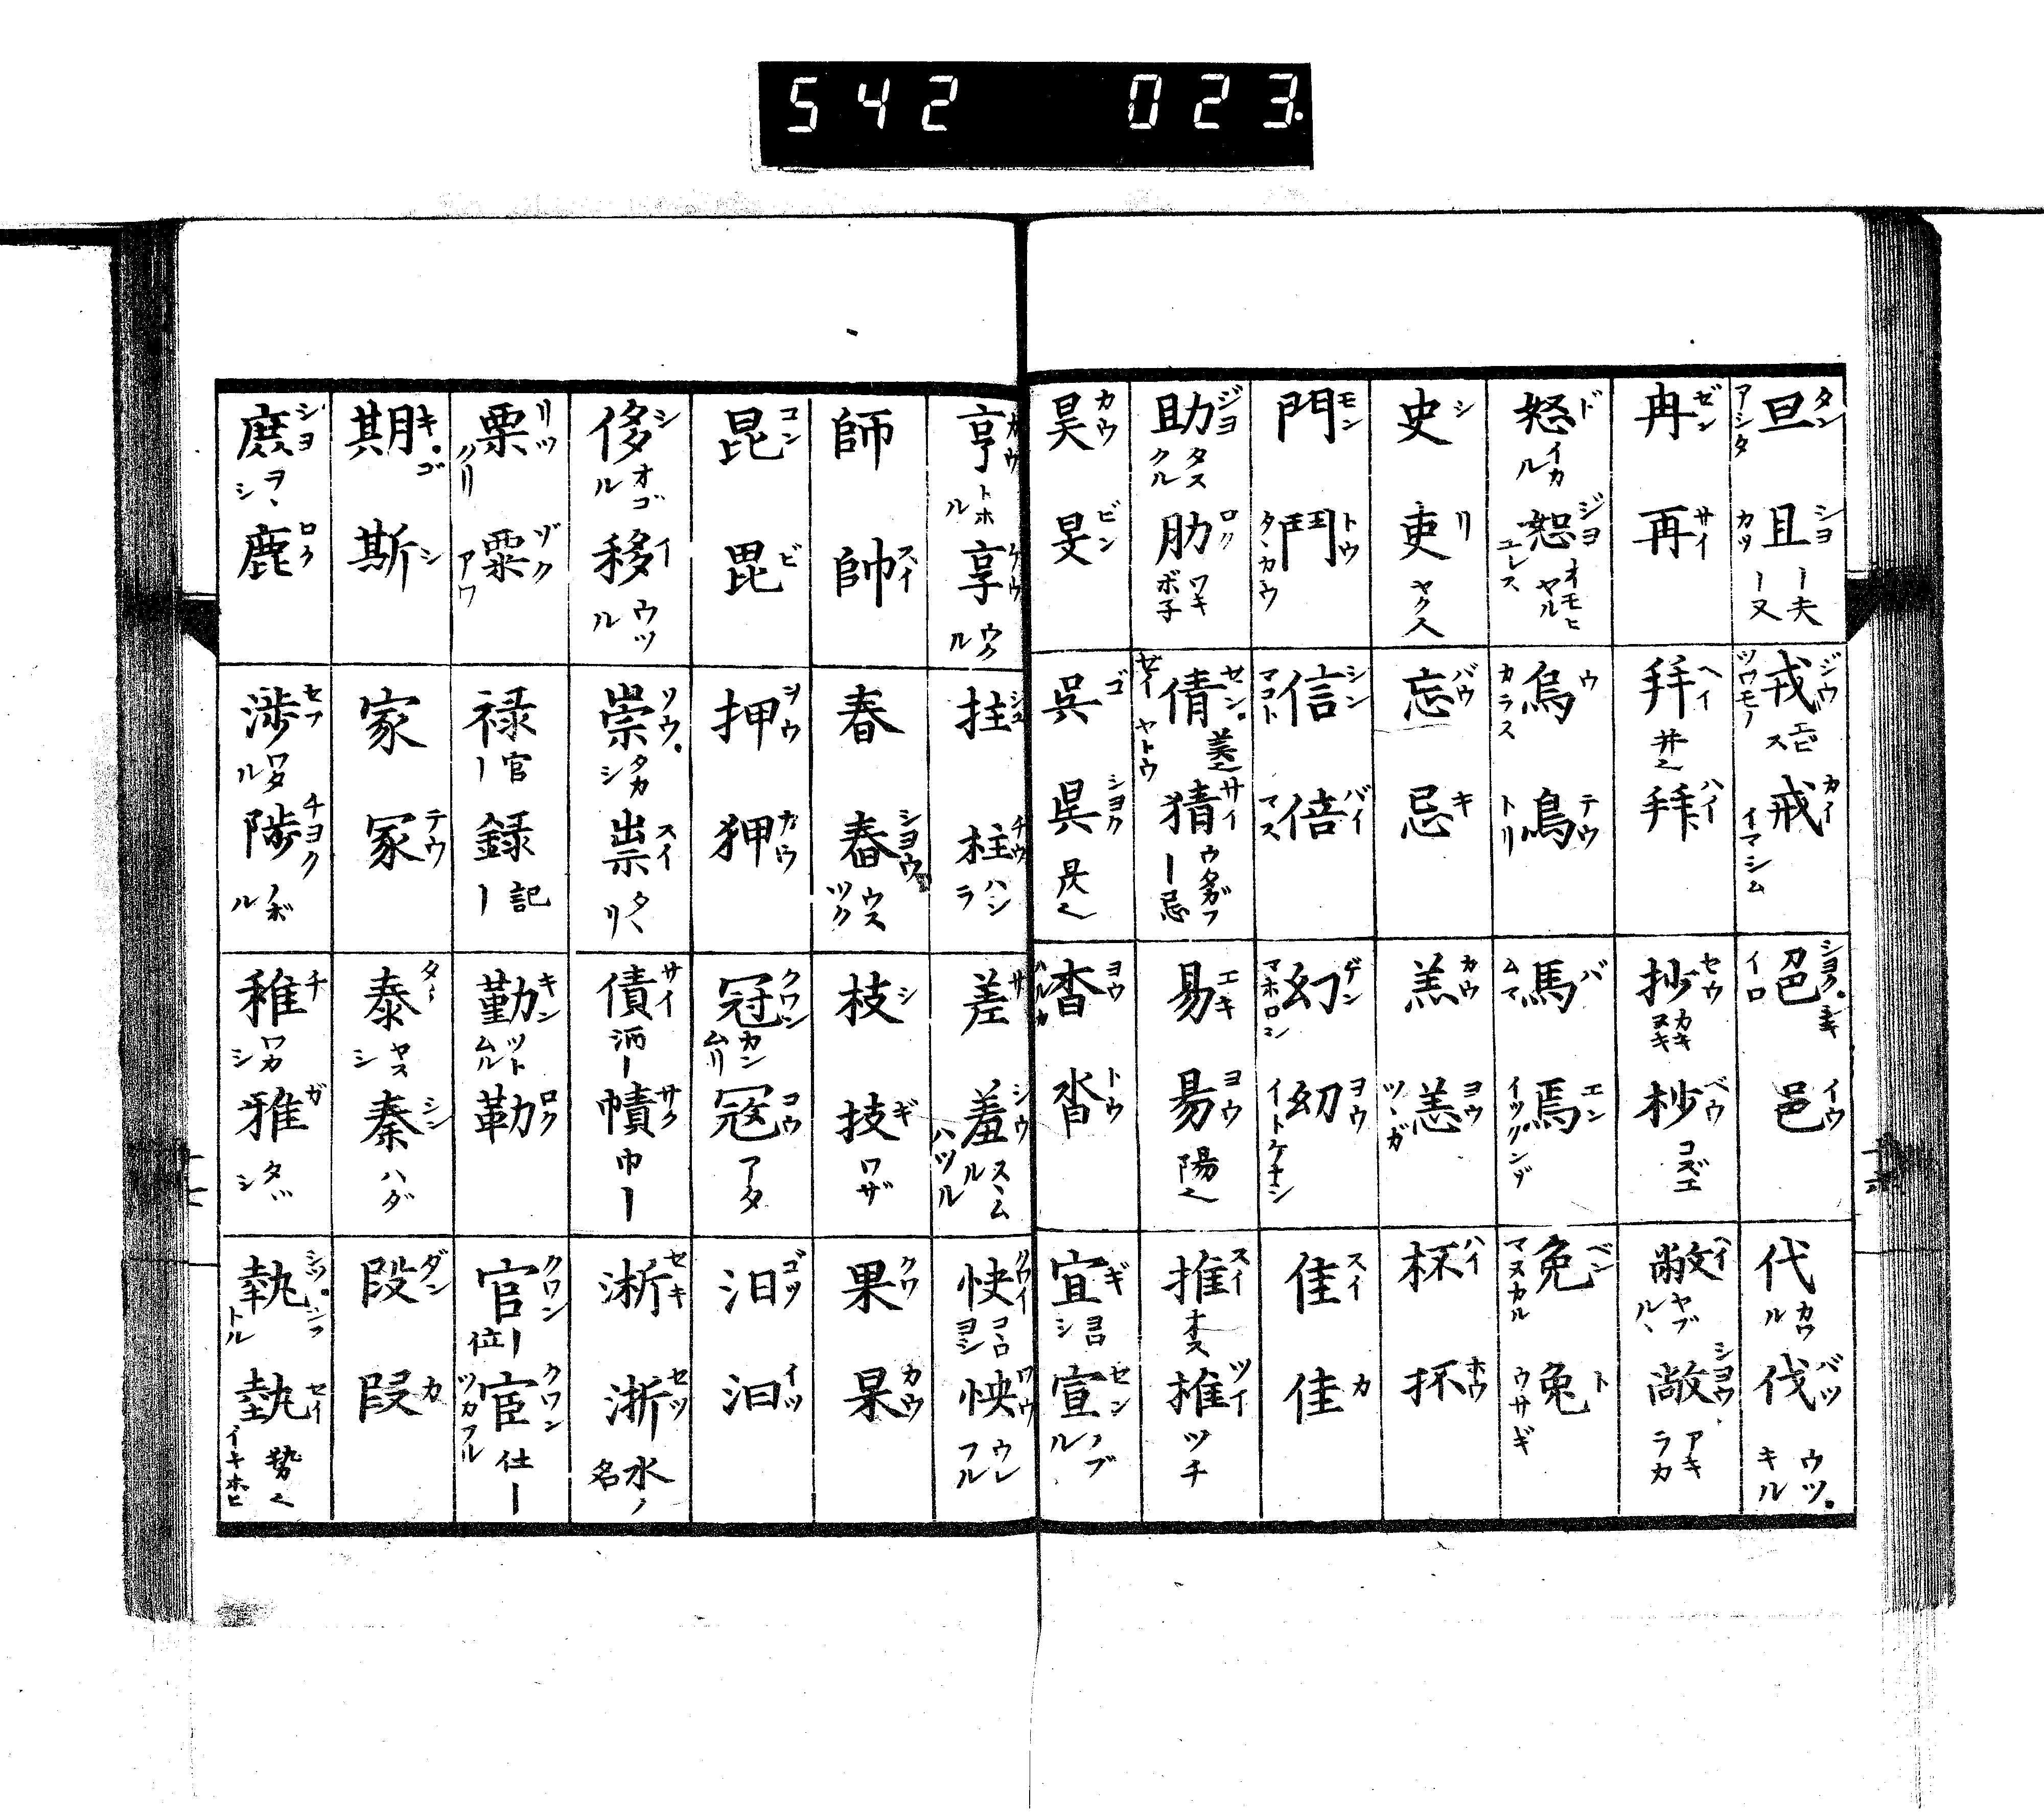 542 023.
旦タンアシタ 且シヨカツ ー夫ー又
戎ジウツワモノ エビス 戒カイイマシム
色シヨク。シキイロ 邑イウ
代カワル 伐バツウツ。キル
冉ゼン 再サイ
拝ヘイ 拜ハイ
抄セウカキヌキ 杪ベウコズエ
敝ヘイヤブル、 敞シヨウアキラカ
怒ドイカル 恕ジヨオモヒヤル
烏ウカラス 鳥テウトリ
馬バムマ 焉エンイヅクンゾ
免ベンマヌカル 兔トウサギ
史シ 吏リヤク人
忘バウ 忌キ
羔カウ 恙ヨウツヽガ
杯ハイ 抔ホウ
門モン 鬥トウタヽカウ
信シンマコト 倍バイマス
幻ゲンマホロシ 幼ヨウイトケナシ
隹スイ 佳カ
助ジヨタスクル 肋ロクワキボ子
倩セン。セイヤトウ 猜サイウタガフ ー忌
易エキ 昜ヨウ陽也
推スイオス 椎ツイツチ
昊カウ 旻ビン
呉ゴ 昃シヨク
杳ヨウハルカ 沓トウ
宜ギヨロシ 宣センノブル
亨カウトホル 享ケウウクル
拄シユ 柱チウハシラ
差サ 羞シウススムルハヅル
快クワイコヽロヨシ 怏ワウウレフル
師 帥スイ
春 舂シヨウウスツク
枝シ 技ギワザ
果クワ 杲カウ
昆コン 毘ビ
押ヲウ 狎カウ
冠クワンカンムリ 寇コウアタ
汨コツ 汩イツ
侈シオゴル 移イウツル
崇ソウ。タカシ 祟スイタヽリ
債サイ 幘サク巾ー
淅セキ 浙セツ水ノ名
栗リツクリ 粟ゾクアワ
禄ー官 録ー記
勤キンツトムル 勒ロク
官クワン位ー 宦クワンツカフル仕ー
期キ。ゴ 斯シ
家 冢テウ
泰タイヤスシ 秦シンハダ
段ダン 叚カ
庶シヨヲヽシ 鹿ロク
渉セフワタル 陟チヨクノボル
稚チワカシ 雅ガタヾシ
執シツ。シフトル 埶セイイキホヒ 勢也